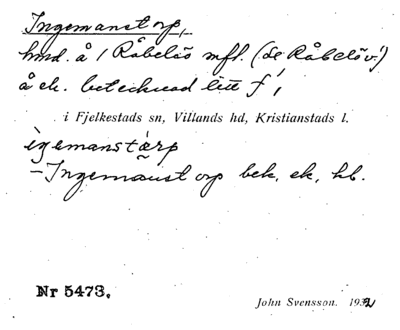 Ingemanstorp,
hmd. å 1 Råbelöv mfl. (se Råbelöv!)
å ek. betecknad litt f,
i Fjelkestads sn, Villands hd, Kristianstads l.
ìgemanstårp
– Ingemanstorp bek, ek, hb.
Nr 5473.
John Svensson. 1932